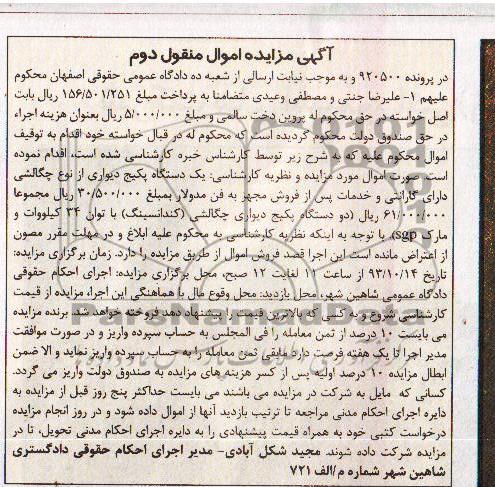 آگهی مزایده اموال منقول دوم
در پرونده ۹۲۰۵۰۰ و به موجب نیابت ارسالی از شعبه ده دادگاه عمومی حقوقی اصفهان محکوم
علیهم ۱- علیرضا جنتی و مصطفی وعیدی متضامنا به پرداخت مبلغ ۱۵۶/۵۰۱/۲۵۱ ریال بابت
اصل خواسته در حق محکوم له پروین دخت سالمی و مبلغ ۵/۰۰۰/۰۰۰ ریال بعنوان هزینه اجراء
در حق صندوق دولت محکوم گردیده است که محکوم له در قبال خواسته خود اقدام به توقیف
اموال محکوم علیه که به شرح زیر توسط کارشناس خبره کارشناسی شده است، اقدام نموده
است. صورت اموال مورد مزایده و نظریه کارشناسی: یک دستگاه پکیج دیواری از نوع چگالشی
دارای گارانتی و خدمات پس از فروش مجهز به فن مدولار بمبلغ ۳۰/۵۰۰/۰۰۰ ریال مجموعا
۶۱/۰۰۰/۰۰۰ ریال (دو دستگاه پکیج دیواری چگالشی (کندانسینگ) با توان ۳۴ کیلووات و
مارک sgp). با توجه به اینکه نظریه کارشناسی به محکوم علیه ابلاغ و در مهلت مقرر مصون
از اعتراض مانده است این اجرا قصد فروش اموال از طریق مزایده را دارد. زمان برگزاری مزایده:
تاریخ ۹۳/۱۰/۱۴ از ساعت ۱۱ لغایت ۱۲ صبح، محل برگزاری مزایده: اجرای احکام حقوقی
دادگاه عمومی شاهین شهر، محل بازدید: محل وقوع مال با هماهنگی این اجرا، مزایده از قیمت
کارشناسی شروع و به کسی که بالاترین قیمت را پیشنهاد دهد فروخته خواهد شد. برنده مزایده
می بایست ۱۰ درصد از ثمن معامله را فی المجلس به حساب سپرده واریز و در صورت موافقت
مدیر اجرا تا یک هفته فرصت دارد مابقی ثمن معامله را به حساب سپرده واریز نماید و الا ضمن
ابطال مزایده ۱۰ درصد اولیه پس از کسر هزینه های مزایده به صندوق دولت واریز می گردد.
کسانی که مایل به شرکت در مزایده می باشند می بایست حداکثر پنج روز قبل از مزایده به
دایره اجرای احکام مدنی مراجعه تا ترتیب بازدید آنها از اموال داده شود و در روز انجام مزایده
درخواست کتبی خود به همراه قیمت پیشنهادی را به دایره اجرای احکام مدنی تحویل، تا در
مزایده شرکت داده شوند. مجید شکل آبادی- مدیر اجرای احکام حقوقی دادگستری
شاهین شهر شماره م/الف ۷۲۱